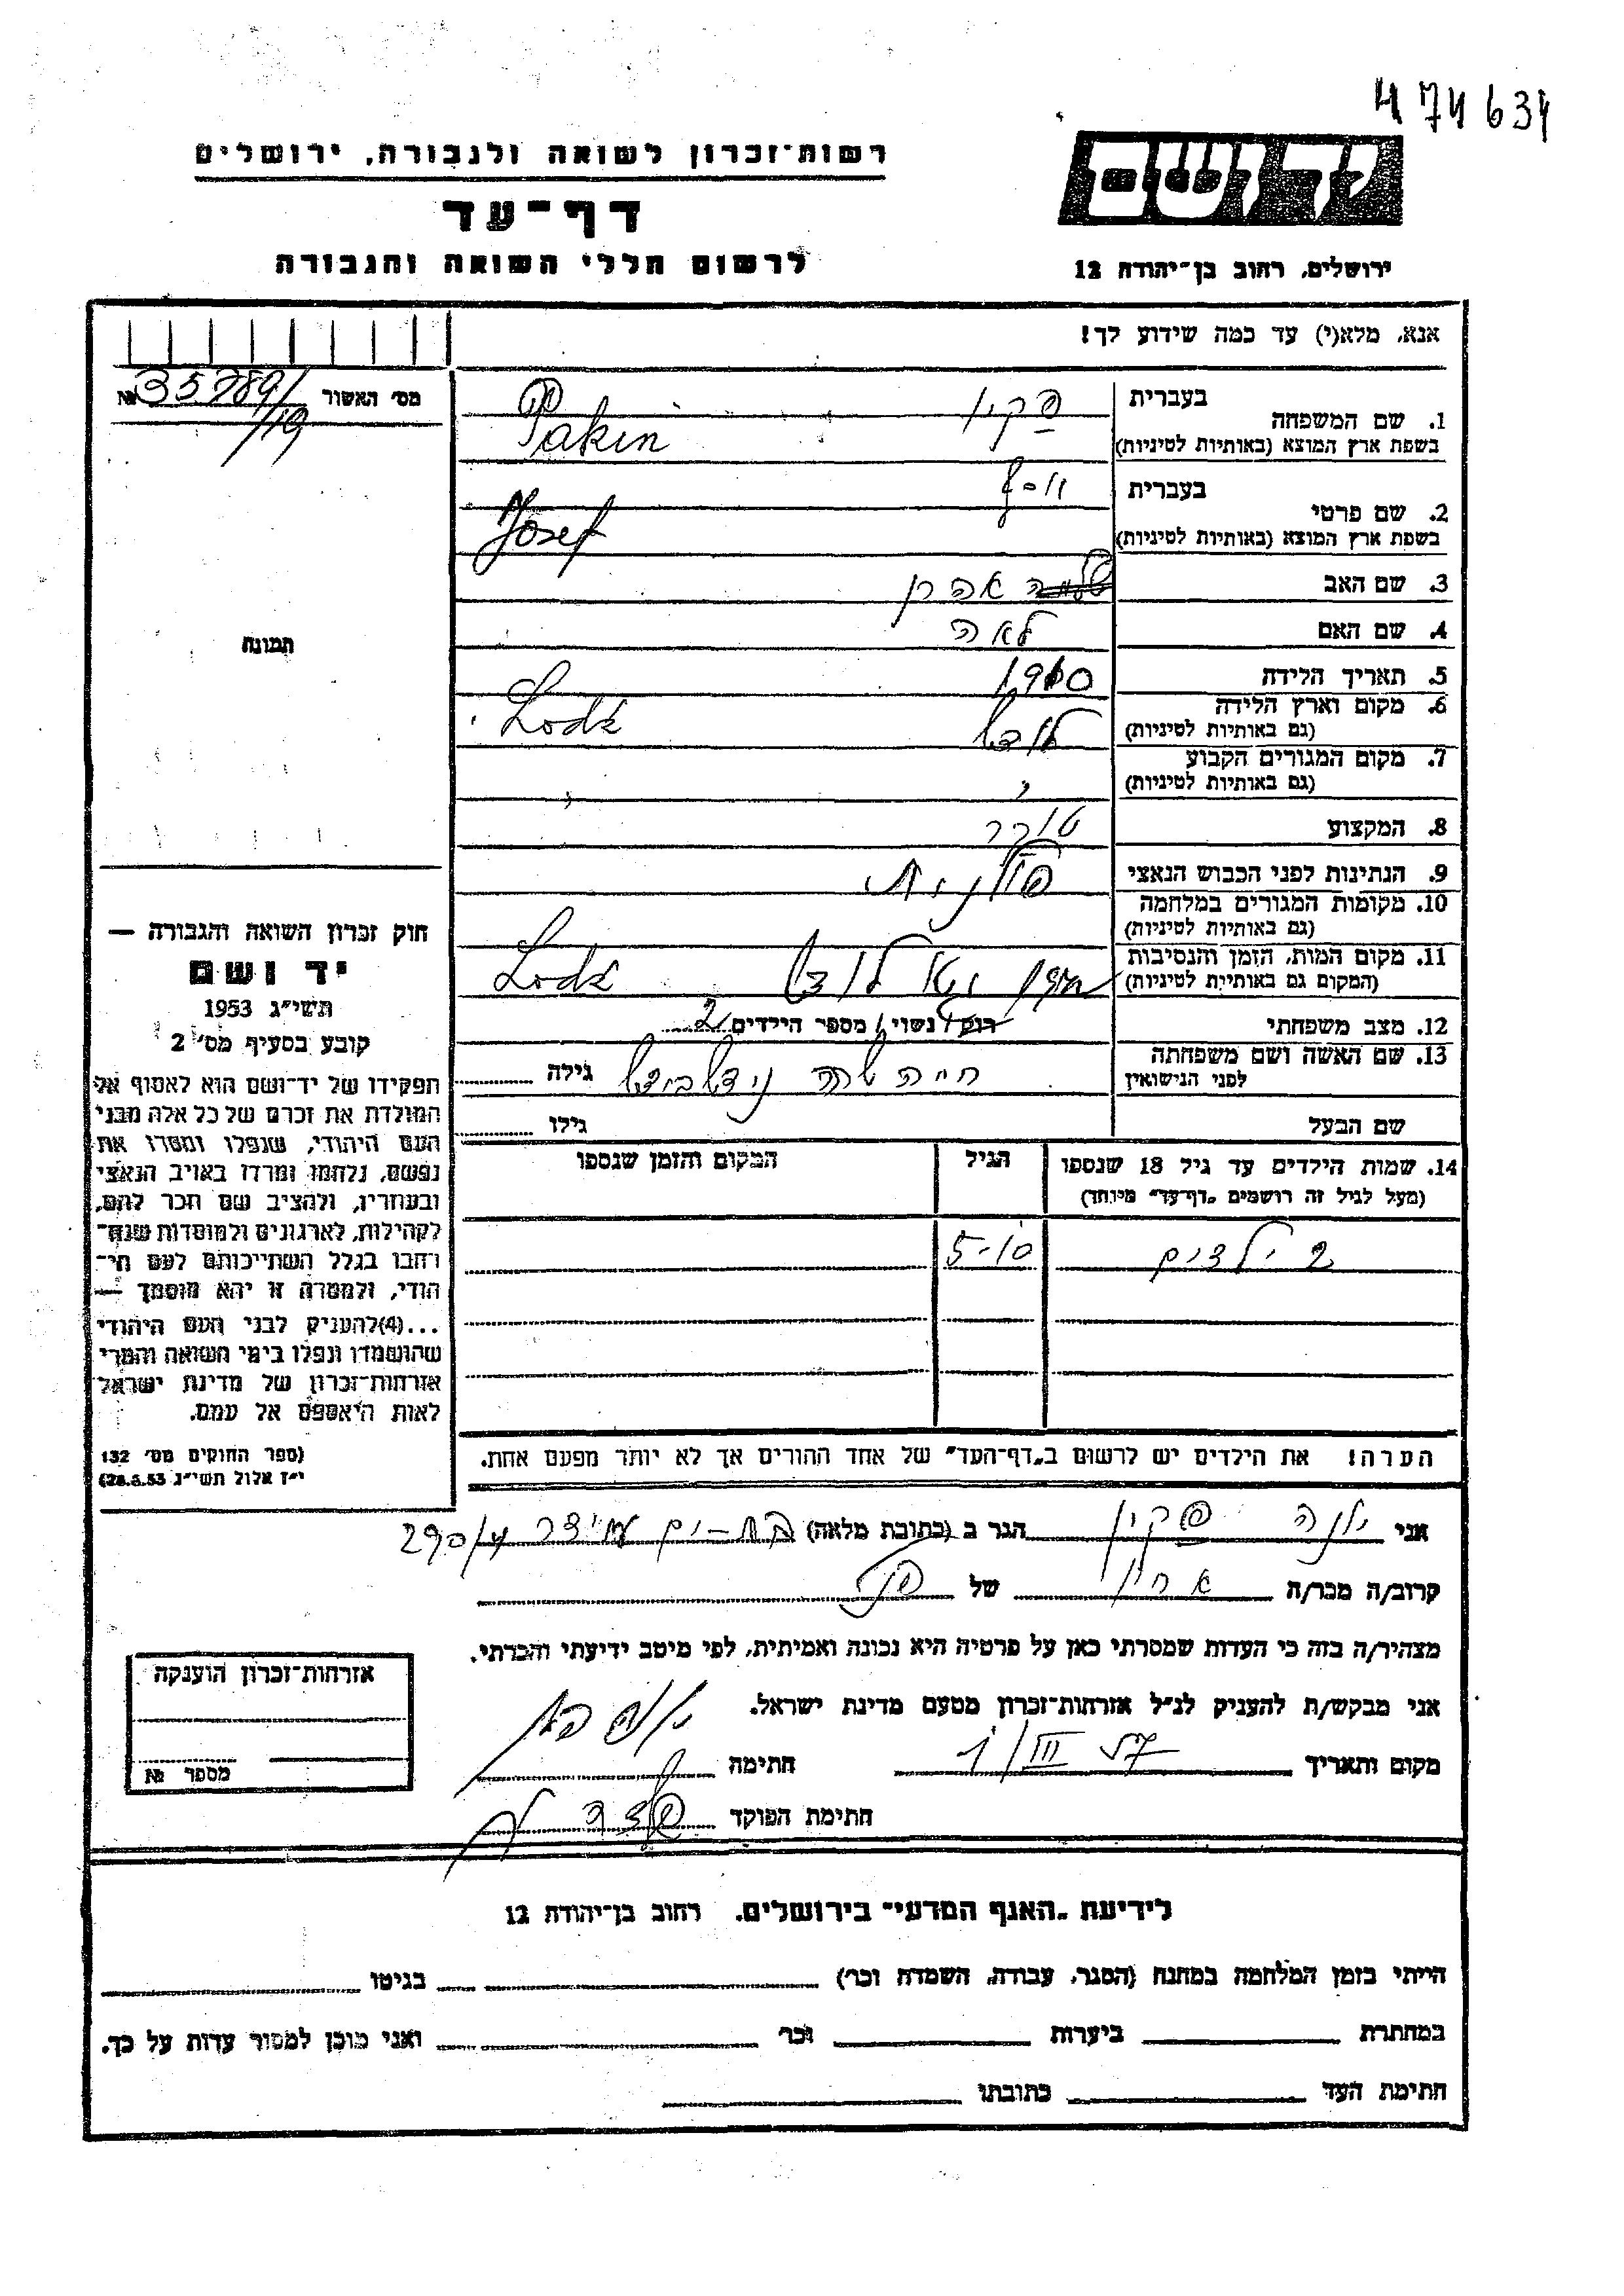 474634
רשות־זכרון לשואה ולגבורה, ירושלים
דף־עד
לרשום חללי השואה והגבורה
יד ושם
ירושלים, רחוב בן־יהודה 12
אנא, מלא(י) עד כמה שידוע לך!
מס׳ האשור № 35789/
/119
תמונה
1. שם המשפחה בעברית פקין
בשפת ארץ המוצא (באותיות לטיניות) Pakin
2. שם פרטי בעברית יוסף
בשפת ארץ המוצא (באותיות לטיניות) Josef
3. שם האב אהרן
4. שם האם לאה
5. תאריך הלידה 1910
6. מקום וארץ הלידה לודז׳ Lodź
(גם באותיות לטיניות)
7. מקום המגורים הקבוע
(גם באותיות לטיניות) " "
8. המקצוע סוחר
9. הנתינות לפני הכבוש הנאצי פולנית
10. מקומות המגורים במלחמה
(גם באותיות לטיניות)
11. מקום המות, הזמן והנסיבות לודז׳ Lodź
(המקום גם באותיות לטיניות)
12. מצב משפחתי רוק/ נשוי/ מספר הילדים 2
13. שם האשה ושם משפחתה חיה שרה גילה
לפני הנישואין
שם הבעל גילו
14. שמות הילדים עד גיל 18 שנספו הגיל המקום והזמן שנספו
(מעל לגיל זה רושמים „דף־עד״ מיוחד)
2 ילדים 5-10
הערה! את הילדים יש לרשום ב„דף־העד״ של אחד ההורים אך לא יותר מפעם אחת.
חוק זכרון השואה והגבורה —
יד ושם
תשי״ג 1953
קובע בסעיף מס׳ 2
תפקידו של יד־ושם הוא לאסוף אל
המולדת את זכרם של כל אלה מבני
העם היהודי, שנפלו ומסרו את
נפשם, נלחמו ומרדו באויב הנאצי
ובעוזריו, ולהציב שם וזכר להם,
לקהילות, לארגונים ולמוסדות שנח־
רבו בגלל השתייכותם לעם הי־
הודי, ולמטרה זו יהא מוסמך —
...(4)להעניק לבני העם היהודי
שהושמדו ונפלו בימי השואה והמרי
אזרחות־זכרון של מדינת ישראל
לאות היאספם אל עמם.
(ספר החוקים מס׳ 132
י״ז אלול תשי״ג 28.8.53)
אני פקין הגר ב (כתובת מלאה) בת-ים עמידר 290/4
קרוב/ה מכר/ה של
מצהיר/ה בזה כי העדות שמסרתי כאן על פרטיה היא נכונה ואמיתית, לפי מיטב ידיעתי והכרתי.
אני מבקש/ת להעניק לנ״ל אזרחות־זכרון מטעם מדינת ישראל.
מקום ותאריך חתימה
חתימת הפוקד
אזרחות־זכרון הוענקה
מספר №
לידיעת „האגף המדעי״ בירושלים. רחוב בן־יהודה 12
הייתי בזמן המלחמה במחנה (הסגר, עבודה, השמדה וכר׳) בגיטו
במחתרת ביערות וכר׳ ואני מוכן למסור עדות על כך.
חתימת העד כתובתו